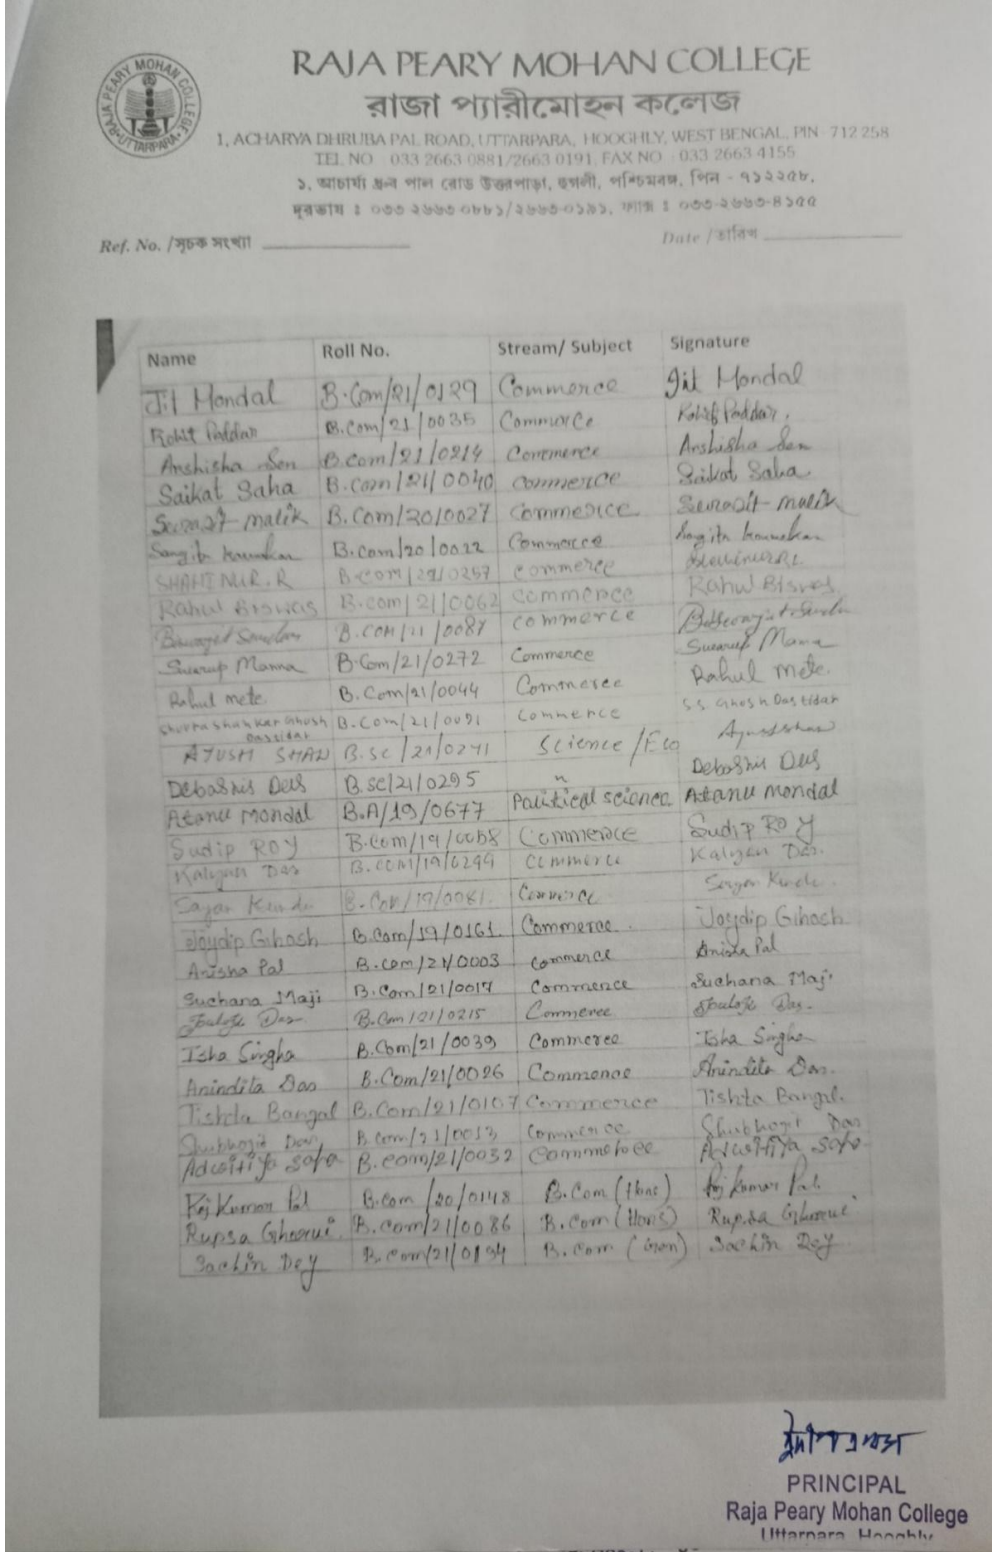 RAJA PEARY MOHAN COLLEGE
UTTARPARA
RAJA PEARY MOHAN COLLEGE
রাজা প্যারীমোহন কলেজ
1, ACHARYA DHRUBA PAL ROAD, UTTARPARA, HOOGHLY, WEST BENGAL, PIN - 712 258
TEL NO : 033 2663 0881/2663 0191, FAX NO : 033 2663 4155
১, আচার্য্য ধ্রুব পাল রোড উত্তরপাড়া, হুগলী, পশ্চিমবঙ্গ, পিন - ৭১২২৫৮,
দূরভাষ : ০৩৩ ২৬৬৩ ০৮৮১/২৬৬৩-০১৯১, ফ্যাক্স : ০৩৩-২৬৬৩-৪১৫৫
Ref. No. /সূচক সংখ্যা Date /তারিখ
Name Roll No. Stream/ Subject Signature
Jit Mondal B.Com/21/0129 Commerce Jit Mondal
Rohit Poddar B.Com/21/0035 Commerce Rohit Poddar.
Anshisha Sen B.Com/21/0214 Commerce Anshisha Sen
Saikat Saha B.Com/21/0040 Commerce Saikat Saha
Malik B.Com/20/0027 Commerce Malik
Sangita B.Com/20/0022 Commerce Sangita
SHAHINUR.R B.COM/21/0257 Commerce
Rahul Biswas B.com/21/0062 Commerce Rahul Biswas
B.COM/21/0087 Commerce
Swarup Manna B.Com/21/0272 Commerce Swarup Manna
Rahul mete. B.Com/21/0044 Commerce Rahul mete.
Ghosh Dastidar B.Com/21/0091 Commerce S.S. Ghosh Dastidar
AYUSH SHAW B.Sc/21/0241 Science/Eco Ayush Shaw
Debashis Das B.Sc/21/0295 " Debashis Das
Atanu Mondal B.A/19/0677 Political science Atanu Mondal
Sudip ROY B.Com/19/0058 Commerce Sudip ROY
Kalyan Das B.COM/19/0299 Commerce Kalyan Das.
Sayan Kundu B.Com/19/0081. Commerce Sayan Kundu
Joydip Ghosh B.Com/19/0161 Commerce Joydip Ghosh
Anisha Pal B.Com/21/0003 Commerce Anisha Pal
Suchana Maji B.Com/21/0017 Commerce Suchana Maji
Das B.Com/21/0215 Commerce Das.
Isha Singha B.Com/21/0039 Commerce Isha Singha
Anindita Das B.Com/21/0026 Commerce Anindita Das.
Tishta Bangal B.Com/21/0107 Commerce Tishta Bangal.
Shubhojit Das B.Com/21/0013 Commerce Shubhojit Das
B.Com/21/0032 Commerce
Raj Kumar Pal B.Com/20/0148 B.Com (Hons) Raj Kumar Pal.
Rupsa Ghorui B.Com/21/0086 B.Com (Hons) Rupsa Ghorui
Sachin Dey B.Com/21/0194 B.Com Sachin Dey
PRINCIPAL
Raja Peary Mohan College
Uttarpara, Hooghly